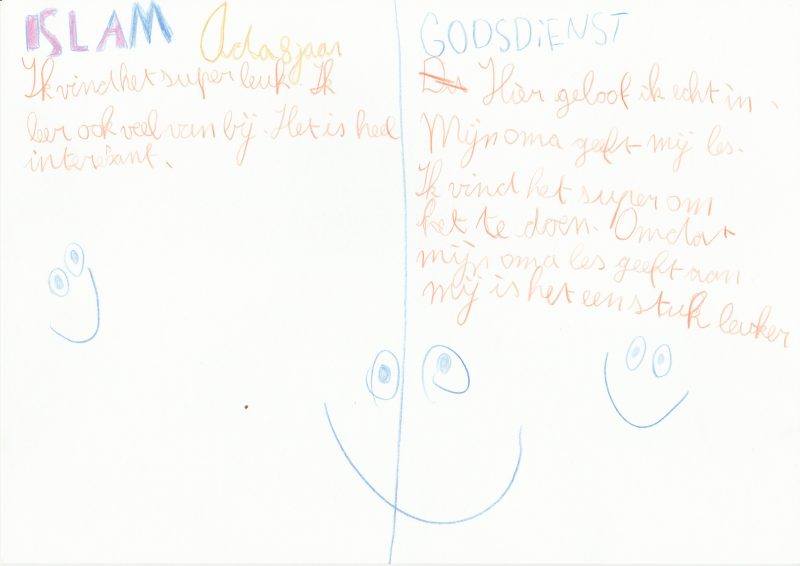 ISLAM Ada 8 jaar
Ik vind het super leuk. Ik
leer ook veel van bij. Het is heel
interesant.
GODSDIENST
Hier geloof ik echt in.
Mijn oma geeft mij les.
Ik vind het super om
het te doen. Omdat
mijn oma les geeft aan
mij is het een stuk leuker